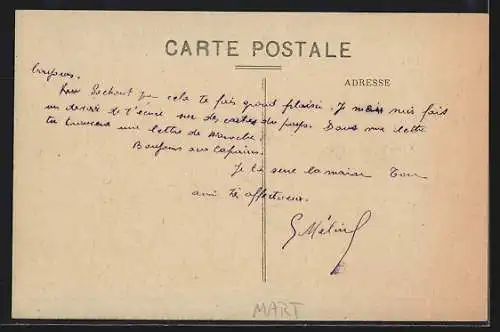 CARTE POSTALE
ADRESSE
que cela te fais grand plaisir. Je me suis fait
un devoir de t'écrire sur des cartes du pays. Dans une lettre
tu trouveras une lettre de
Bonjour aux Copains.
Je te serre la main Ton
ami affectueux.
G Mélin
MART